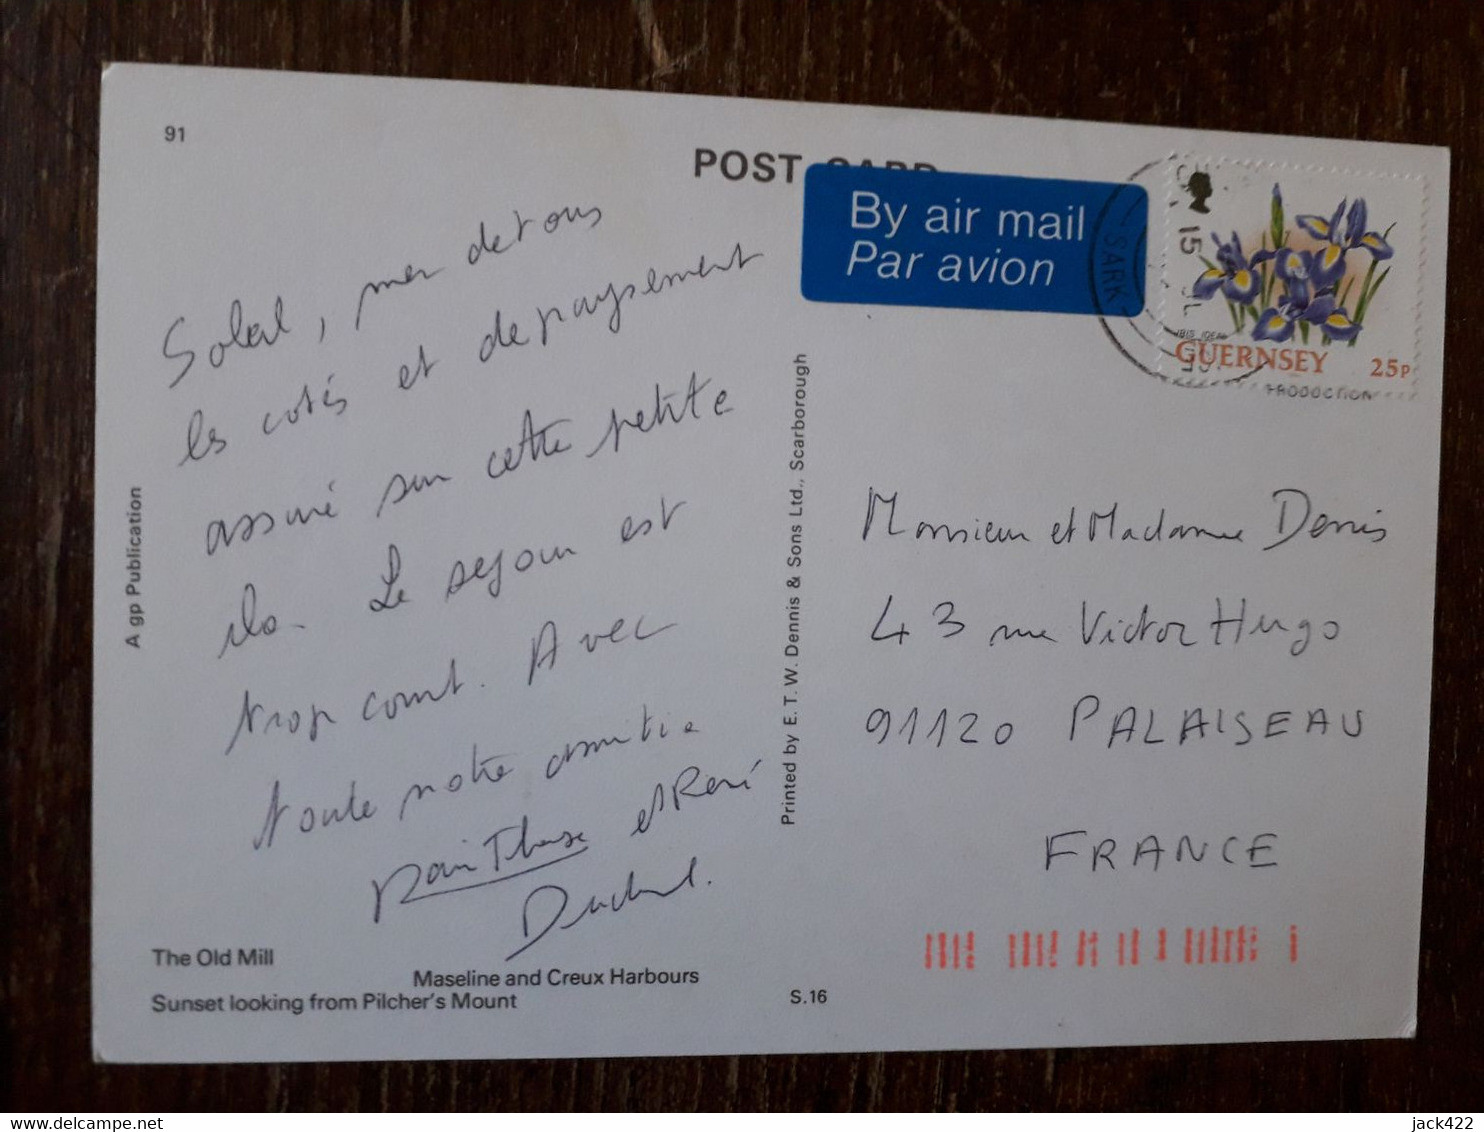 91
POST CARD
By air mail
Par avion
SARK
15 JL
GUERNSEY
25P
PRODUCTION
Soleil, mer de tous
les cotés et depaysement
assuré sur cette petite
ile. Le sejour est
trop court. Avec
toute notre amitie
et René
Monsieur et Madame Denis
43 rue Victor Hugo
91120 PALAISEAU
FRANCE
A gp Publication
Printed by E. T. W. Dennis & Sons Ltd., Scarborough
The Old Mill
Maseline and Creux Harbours
Sunset looking from Pilcher's Mount
S.16
delcampe.net
jack422